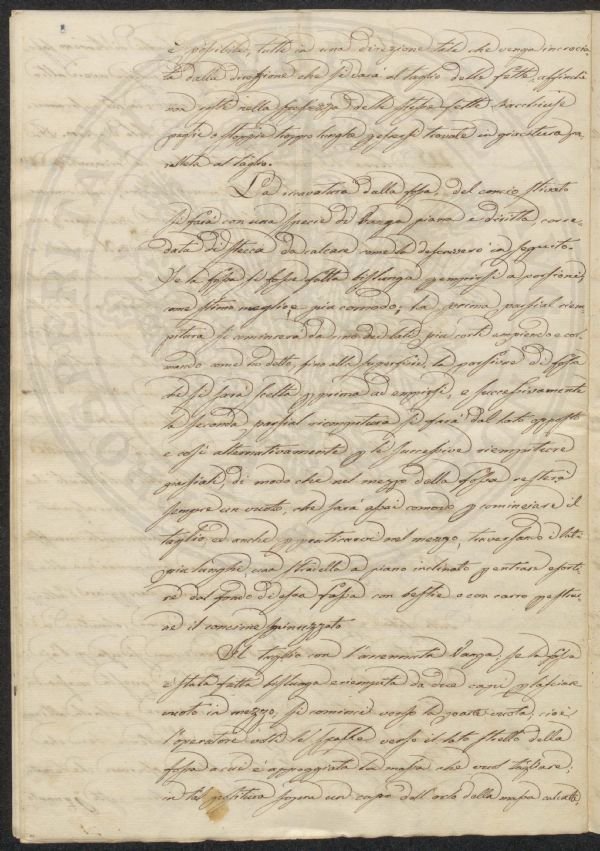 è possibile, tutte in una direzione tale che venga incrocia-
ta dalla direzione che si darà al taglio delle fette, affinché
non resti nella spessezza delle stesse fette racchiuse
paglie o stoppie troppo lunghe per essersi trovate in giacitura pa-
rallela al taglio.
La ricavatura dalla fossa, del concio stivato
si farà con una specie di Vanga piana e diritta corre-
data di stecca da calcare come la descriverò in seguito.
Se la fossa si fosse fatta bislunga p empirsi a porzioni,
come stimo meglio, e più comodo, la prima parzial riem-
pitura si comincerà da uno dei lati più corti empiendo e col-
mando come ho detto, fino alla superficie, la porzione di fossa
che si sarà scelta p prima ad empirsi, e successivamente
la seconda parzial riempitura si farà dal lato opposto
e così alternativamente p le successive riempiture
parziali, di modo che nel mezzo della fossa resterà
sempre un vuoto, che sarà assai comodo p cominciare il
taglio, ed anche p praticarvi nel mezzo, traversando i lati
più lunghi, una stradella a piano inclinato p entrare e sorti-
re dal fondo di essa fossa con bestie o con carro p estrar-
ne il concime sminuzzato.
Il taglio con l'accennata Vanga, se la fossa
è stata fatta bislunga e riempita da due capi, p lasciare
vuoto in mezzo, si cominci verso la parte vuota, cioè
l'operatore volti le spalle verso il lato stretto della
fossa a cui è appoggiata la massa che vuol tagliare;
in tal positura sopra un capo dell'orlo della massa calcata,